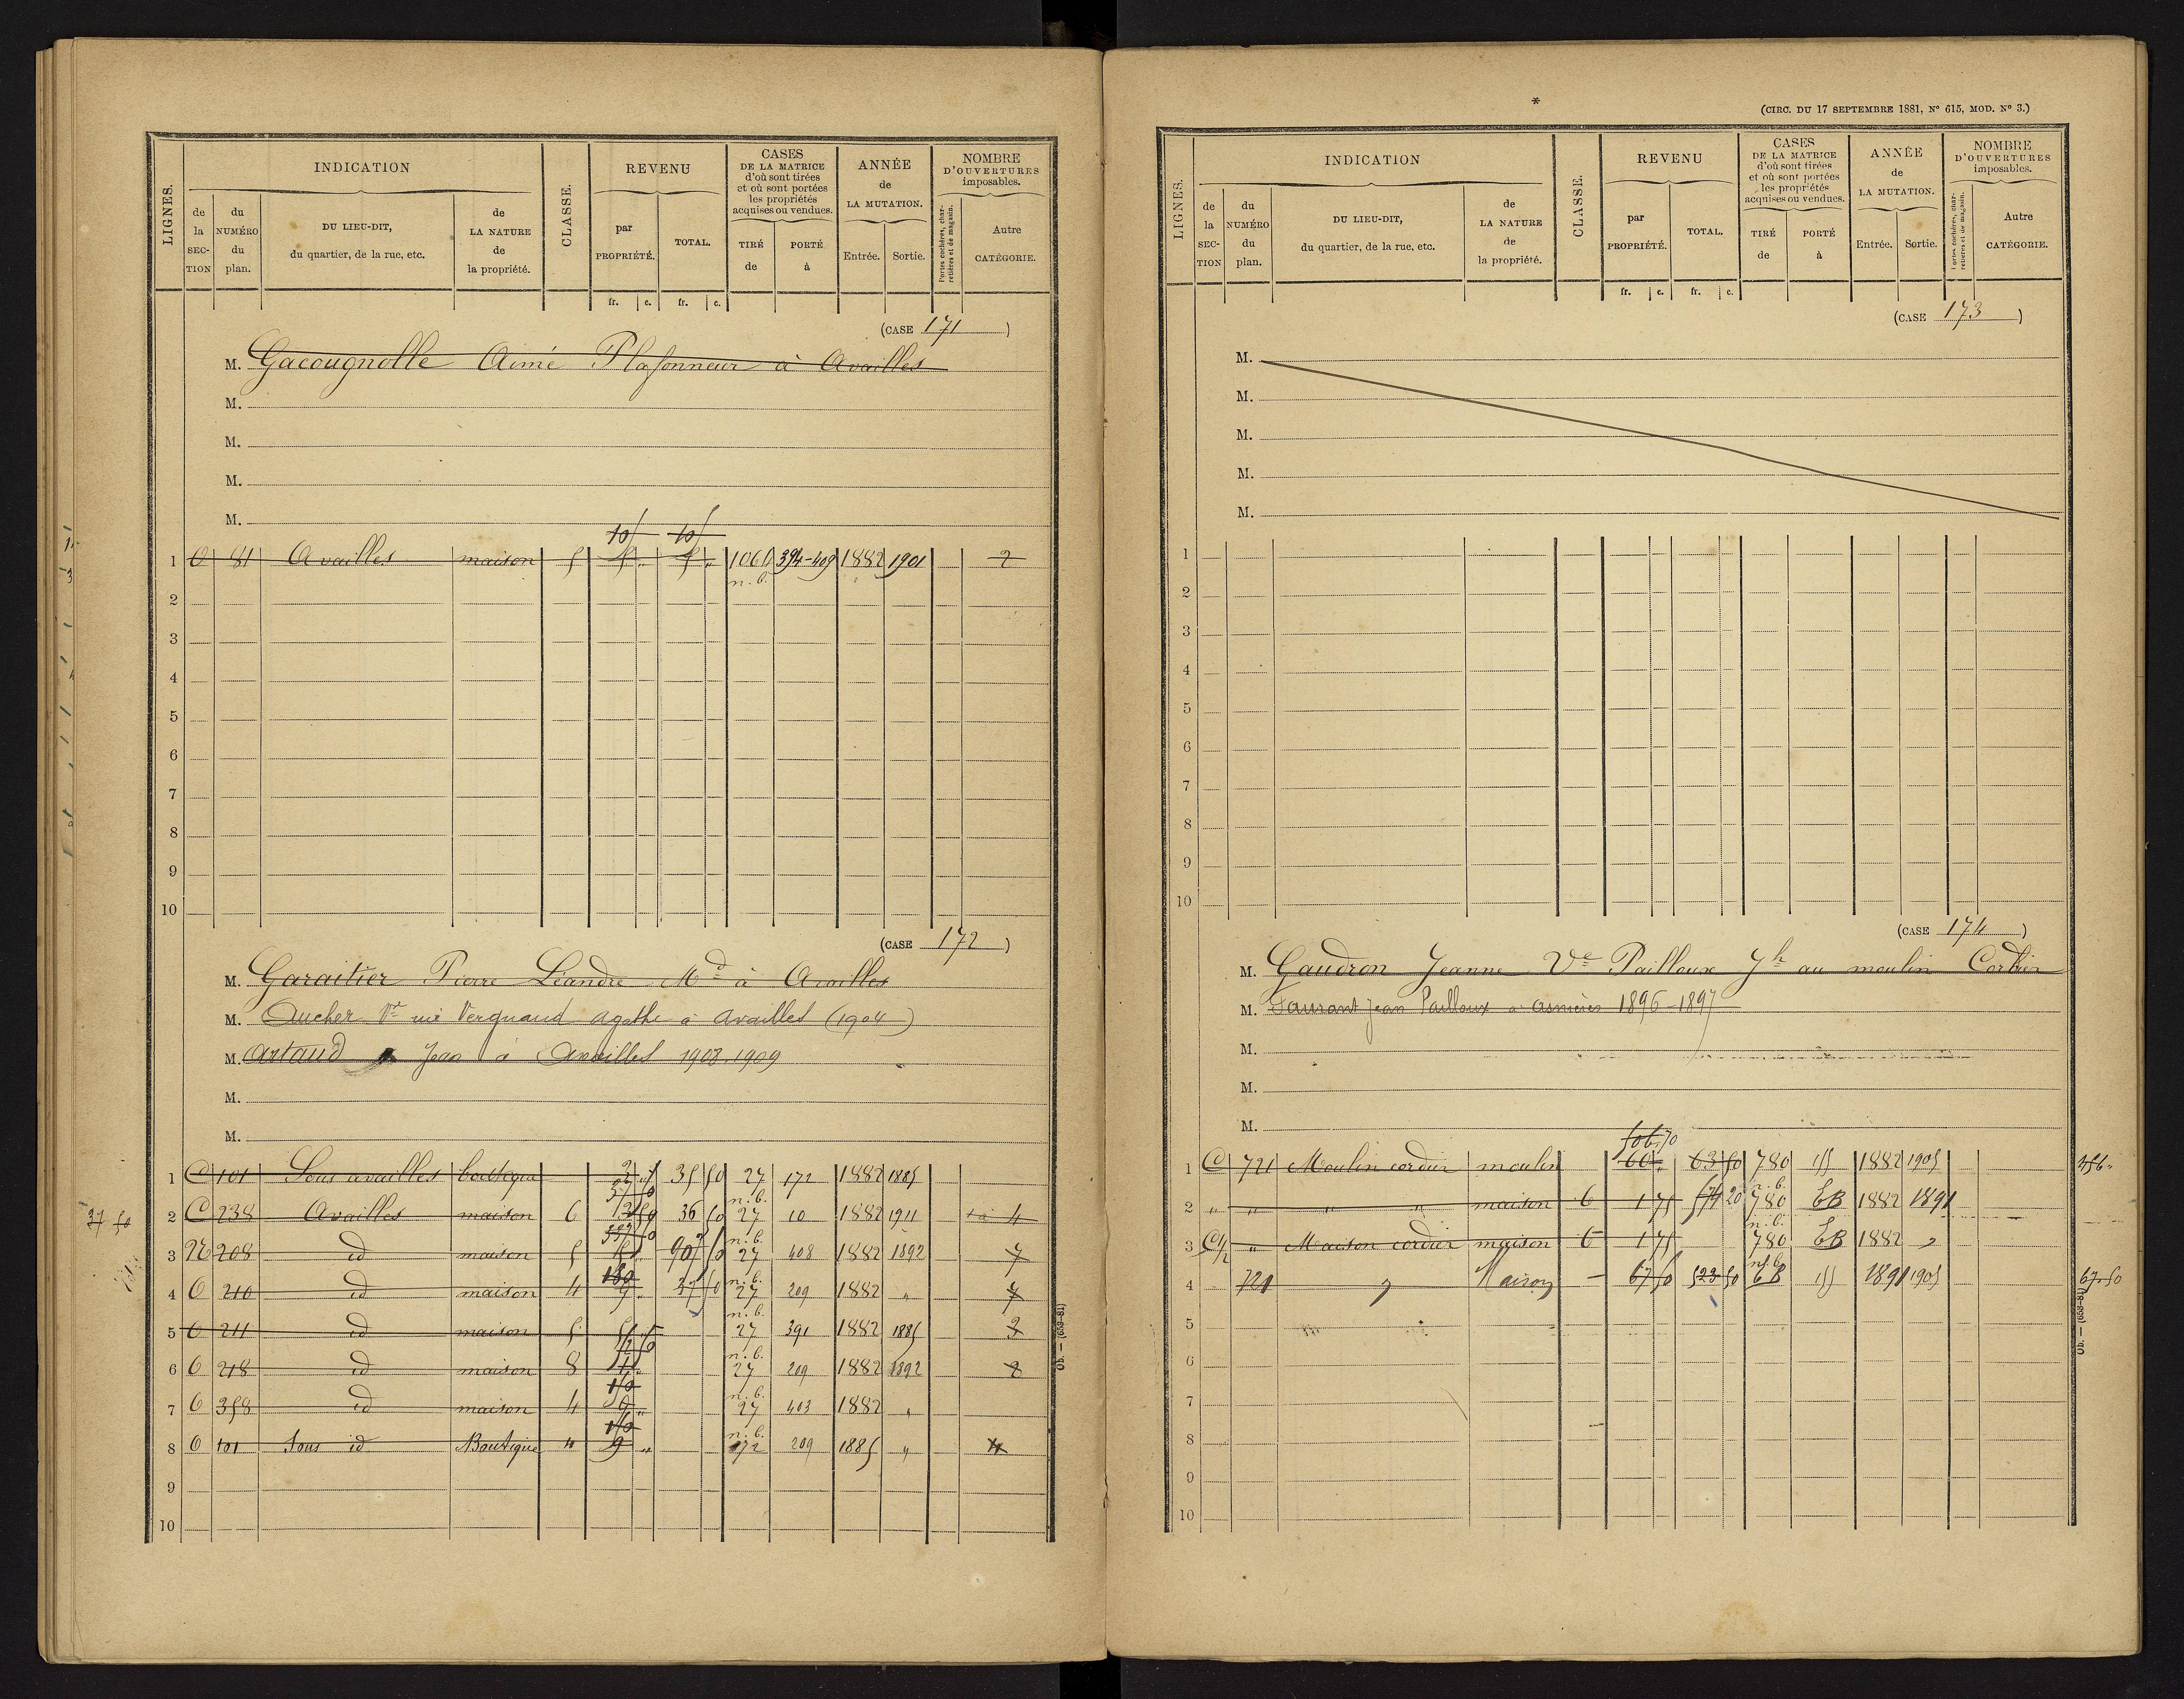 LIGNES. INDICATION CLASSE. REVENU CASES DE LA MATRICE d'où sont tirées et où sont portées les propriétés acquises ou vendues. ANNÉE de LA MUTATION. NOMBRE D'OUVERTURES imposables.
de la SECTION du NUMÉRO du plan. DU LIEU-DIT, du quartier, de la rue, etc. de LA NATURE de la propriété. par PROPRIÉTÉ. TOTAL. TIRÉ de PORTÉ à Entrée. Sortie. Portes cochères, charretières et de magasin. Autre CATÉGORIE.
fr. c. fr. c.
(CASE 171)
M. Gacougnolle Aimé Plafonneur à Availles
M.
M.
M.
M.
10 10
1 81 Availles maison 5 394-409 1882 1901 2
n.b.
2
3
4
5
6
7
8
9
10
(CASE 172)
M. Garaitier Pierre Léandre Md à Availles
M. Aucher Vve née Vergnaud Agathe à Availles (1904)
M. Artaud Jean à Availles 1908-1909
M.
M.
1 C 101 Sous availles boutique 35 50 27 172 1882 1885
37 50
2 C 238 Availles maison 6 36 50 27 10 1882 1911 4
3 208 id maison 5 27 408 1882 1892 7
4 210 id maison 4 37 50 27 209 1882 " 7
5 211 id maison 5 27 391 1882 1885 3
6 218 id maison 8 27 209 1882 1892 2
7 358 id maison 4 27 403 1882 "
8 101 Sous id Boutique " 9 " 172 209 1885 " 4
9
10
Ob. — (658-81)
*
(CIRC. DU 17 SEPTEMBRE 1881, N° 615, MOD. N° 3.)
LIGNES. INDICATION CLASSE. REVENU CASES DE LA MATRICE d'où sont tirées et où sont portées les propriétés acquises ou vendues. ANNÉE de LA MUTATION. NOMBRE D'OUVERTURES imposables.
de la SECTION du NUMÉRO du plan. DU LIEU-DIT, du quartier, de la rue, etc. de LA NATURE de la propriété. par PROPRIÉTÉ. TOTAL. TIRÉ de PORTÉ à Entrée. Sortie. Portes cochères, charretières et de magasin. Autre CATÉGORIE.
fr. c. fr. c.
(CASE 173)
M.
M.
M.
M.
M.
1
2
3
4
5
6
7
8
9
10
(CASE 174)
M. Gaudron Jeanne Vve Pailloux Jh au moulin Cordier
M. Laurant Jean Pailloux à Asnières 1896-1897
M.
M.
M.
1 C 721 Moulin cordier moulin 60 " 63 50 780 155 1882 1905
2 " " " " maison 6 1 75 574 20 780 EB 1882 1891
n.b.
3 " Maison cordier maison 6 1 75 780 EB 1882 "
4 721 " Maison — 67 50 523 50 EB 155 1891 1905 67-50
5
6
7
8
9
10
Ob. — (658-81)